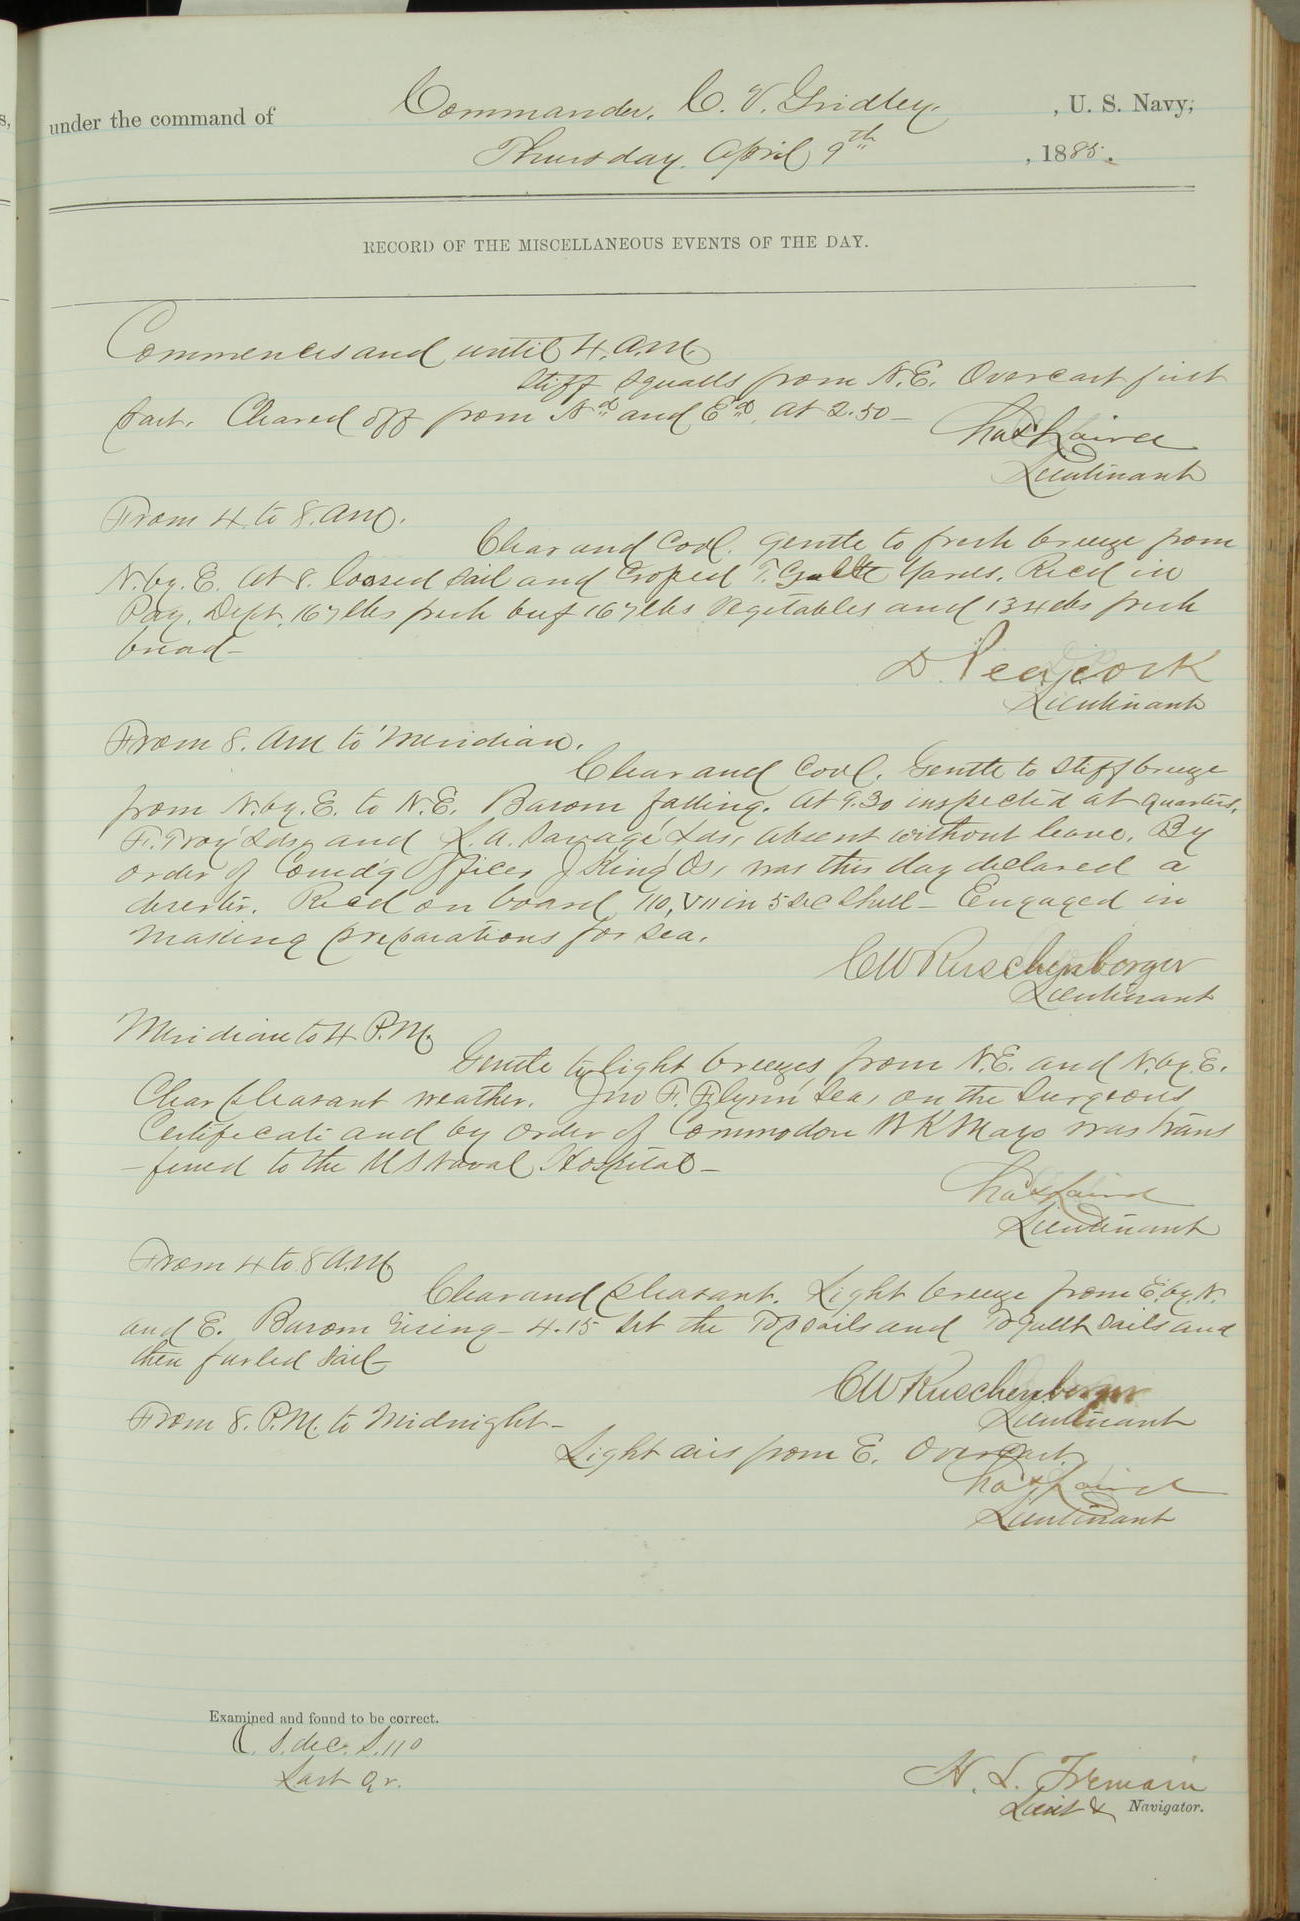 under the command of Commander, C. V. Gridley. , U. S. Navy,
Thursday, April 9th , 1885.
RECORD OF THE MISCELLANEOUS EVENTS OF THE DAY.
Commences and until 4. A.M.
Stiff squalls from N.E. Overcast first
part. Cleared off from Nd and Ed at 2.50 —
Chas Laird
Lieutenant
From 4 to 8. AM.
Clear and cool. Gentle to fresh breeze from
N. by. E. At 8. loosed sail and crossed T. Gallt Yards. Recd in
Pay. Dept. 167 lbs fresh beef 167 lbs Vegetables and 134 lbs fresh
bread —
D. Peacock
Lieutenant
From 8. AM to Meridian.
Clear and cool. Gentle to stiff breeze
from N. by. E. to N.E. Barom falling. At 9.30 inspected at quarters.
F. Troy Lds, and L. A. Savage Lds, absent without leave. By
order of Comd'g Officer J King Os, was this day declared a
deserter. Recd on board 110, VII in 5 sec Shell — Engaged in
making preparations for sea.
C W Ruschenberger
Lieutenant
Meridian to 4 P.M.
Gentle to light breezes from N.E. and N. by. E.
Clear pleasant weather. Jno F. Flynn Sea, on the Surgeons
Certificate and by order of Commodore W K Mayo was trans
-ferred to the U S Naval Hospital —
Chas Laird
Lieutenant
From 4 to 8 A.M.
Clear and pleasant. Light breeze from E. by. N.
and E. Barom rising — 4.15 set the Topsails and To'gallt sails and
then furled sail —
C W Ruschenberger
Lieutenant
From 8. P.M. to Midnight —
Light airs from E. Overcast.
Chas Laird
Lieutenant
Examined and found to be correct.
S. dec. S. 110
Last Qr.
H. L. Tremain
Lieut & Navigator.